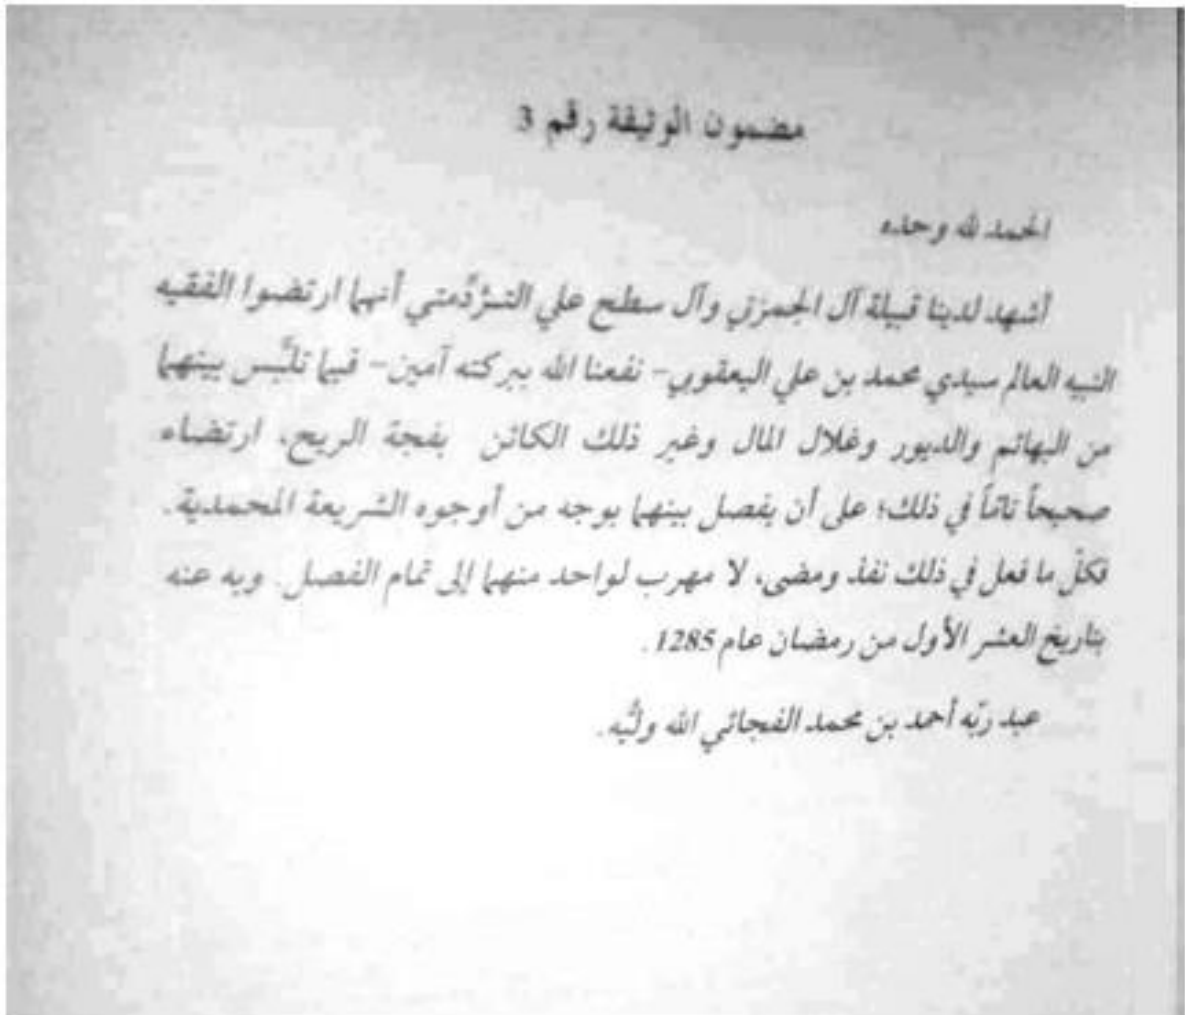 مضمون الوثيقة رقم 3
الحمد لله وحده
أشهد لدينا قبيلة آل الجمزني وآل سطح علي التزدّمتي أنهما ارتضوا الفقيه
النبيه العالم سيدي محمد بن علي اليعقوبي- نفعنا الله ببركته آمين- فيما تلبَّس بينهما
من البهائم والديور وغلال المال وغير ذلك الكائن بفجة الريح، ارتضاء
صحيحاً تامّاً في ذلك؛ على أن يفصل بينهما بوجه من أوجوه الشريعة المحمدية.
فكلّ ما فعل في ذلك نفذ ومضى، لا مهرب لواحد منهما إلى تمام الفصل. وبه عنه
بتاريخ العشر الأول من رمضان عام 1285.
عبد ربّه أحمد بن محمد الفجائي الله وليُّه.